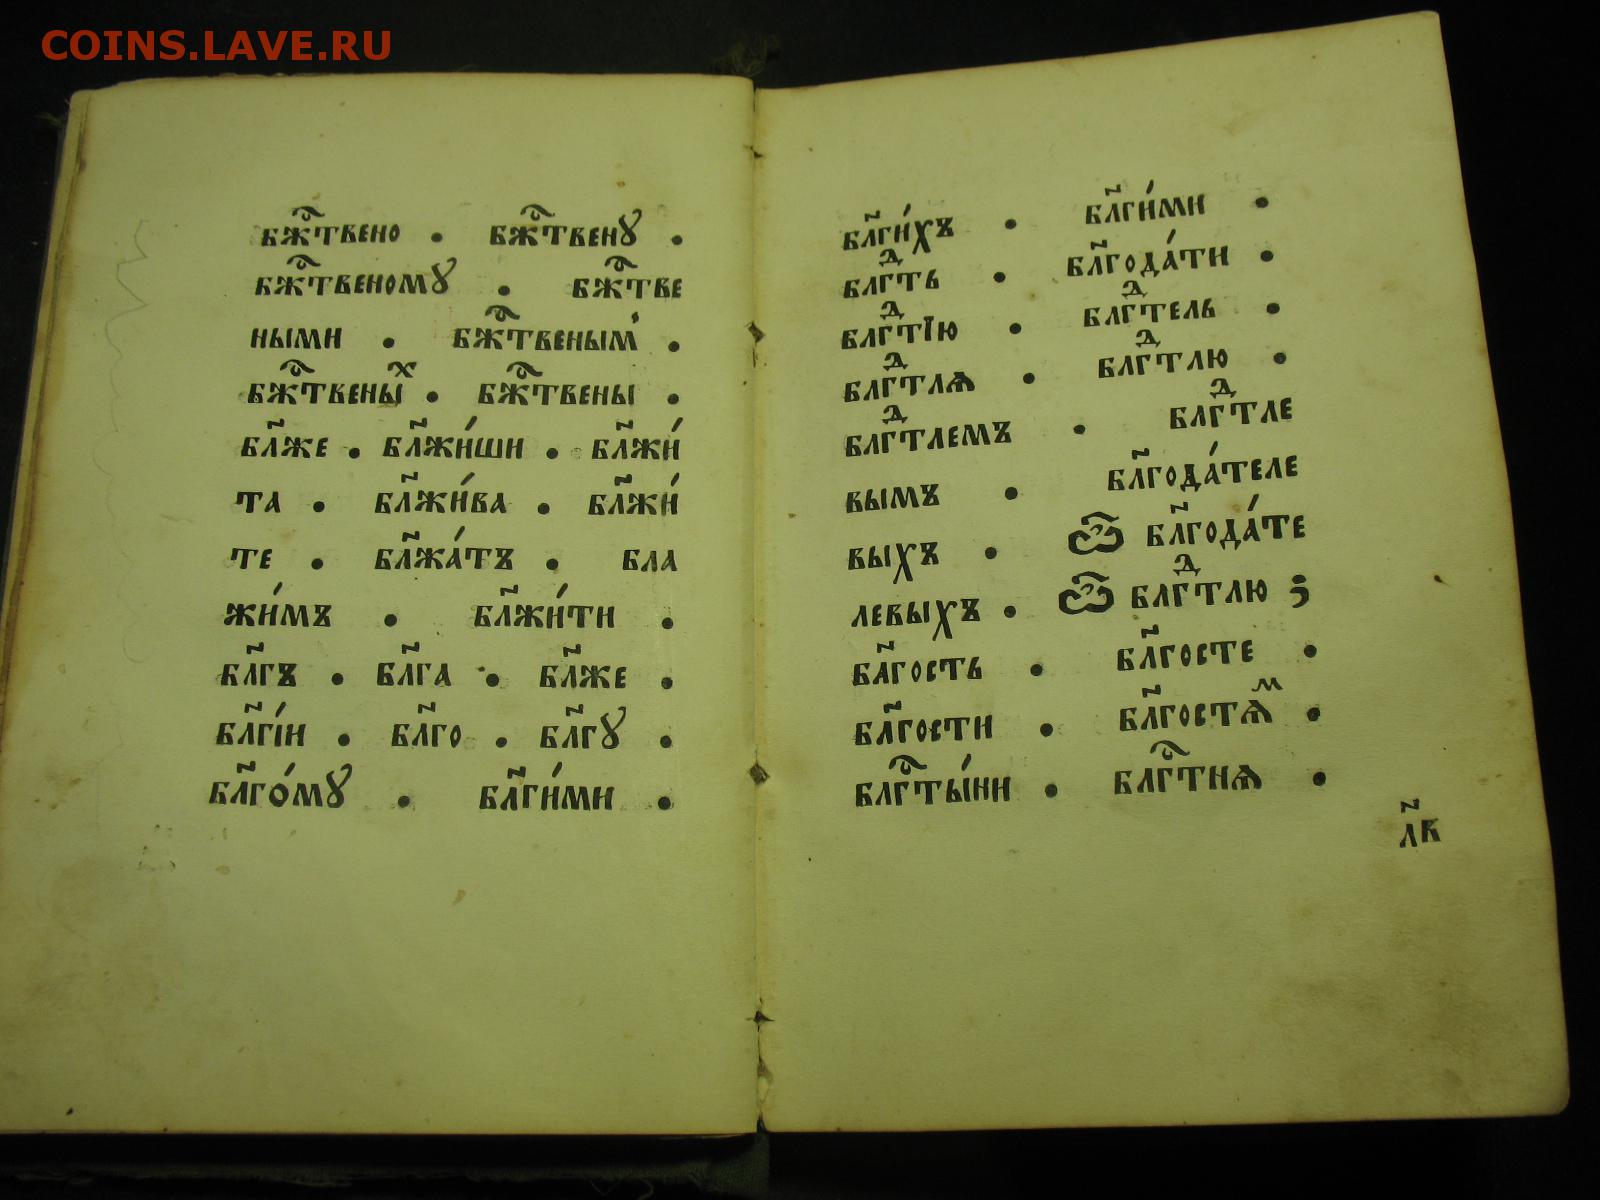 COINS.LAVE.RU
бж҃ⷭ҇твено . бж҃ⷭ҇твенꙋ .
бж҃ⷭ҇твеномꙋ . бж҃ⷭ҇тве
ными . бж҃ⷭ҇твеным̾ .
бж҃ⷭ҇твеныⷯ . бж҃ⷭ҇твены .
бл҃же . бл҃жи́ши . бл҃жи́
та . бл҃жи́ва . бл҃жи́
те . бл҃жа́тъ . бла
жи́мъ . бл҃жи́ти .
бл҃гъ . бл҃га . бл҃же .
бл҃гі́и . бл҃го . бл҃гꙋ .
бл҃го́мꙋ . бл҃ги́ми .
бл҃ги́хъ . бл҃ги́ми .
блгⷣть . бл҃года́ти .
блгⷣтїю . блгⷣтель .
блгⷣтлѧ . блгⷣтлю .
блгⷣтлемъ . блгⷣтле
вымъ . бл҃года́теле
выхъ . бл҃года́те
левыхъ . блгⷣтлю ;
бл҃гость . бл҃госте .
бл҃гости . бл҃гостѧⷨ .
блгⷭ҇ты́ни . блгⷭ҇тнѧ .
л҃в